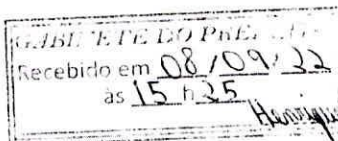 GABINETE DO PRE
Recebido em 08/09/22
às 15 h 25
Henrique